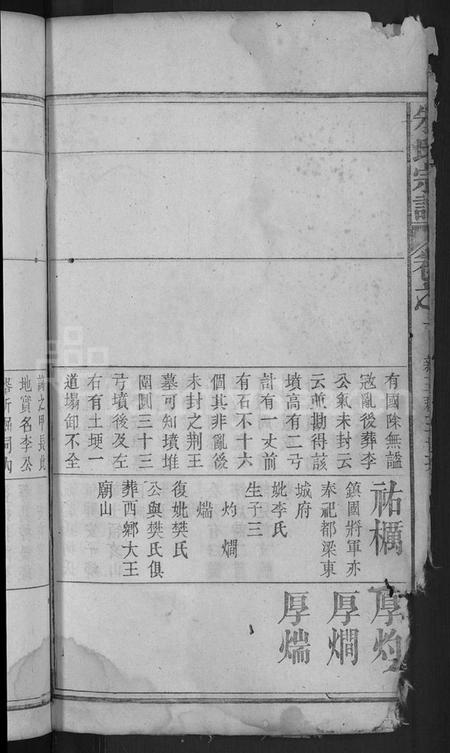 朱氏宗譜 卷之
有國除無諡
寇亂後葬李
公氣未封云
云勘得該
墳高有二弓
計有一丈前
有石不十六
個其非亂後
未封之荆王
墓可知墳堆
圍圓三十三
弓墳後及左
右有土埂一
道塌卸不全
祐櫔
鎮國將軍亦
奉祀都梁東
城府
妣李氏
生子三
灼 燗
煓
復妣樊氏
公與樊氏俱
葬西鄉大王
廟山
厚灼
厚燗
厚煓
之甲長此
地實名李公